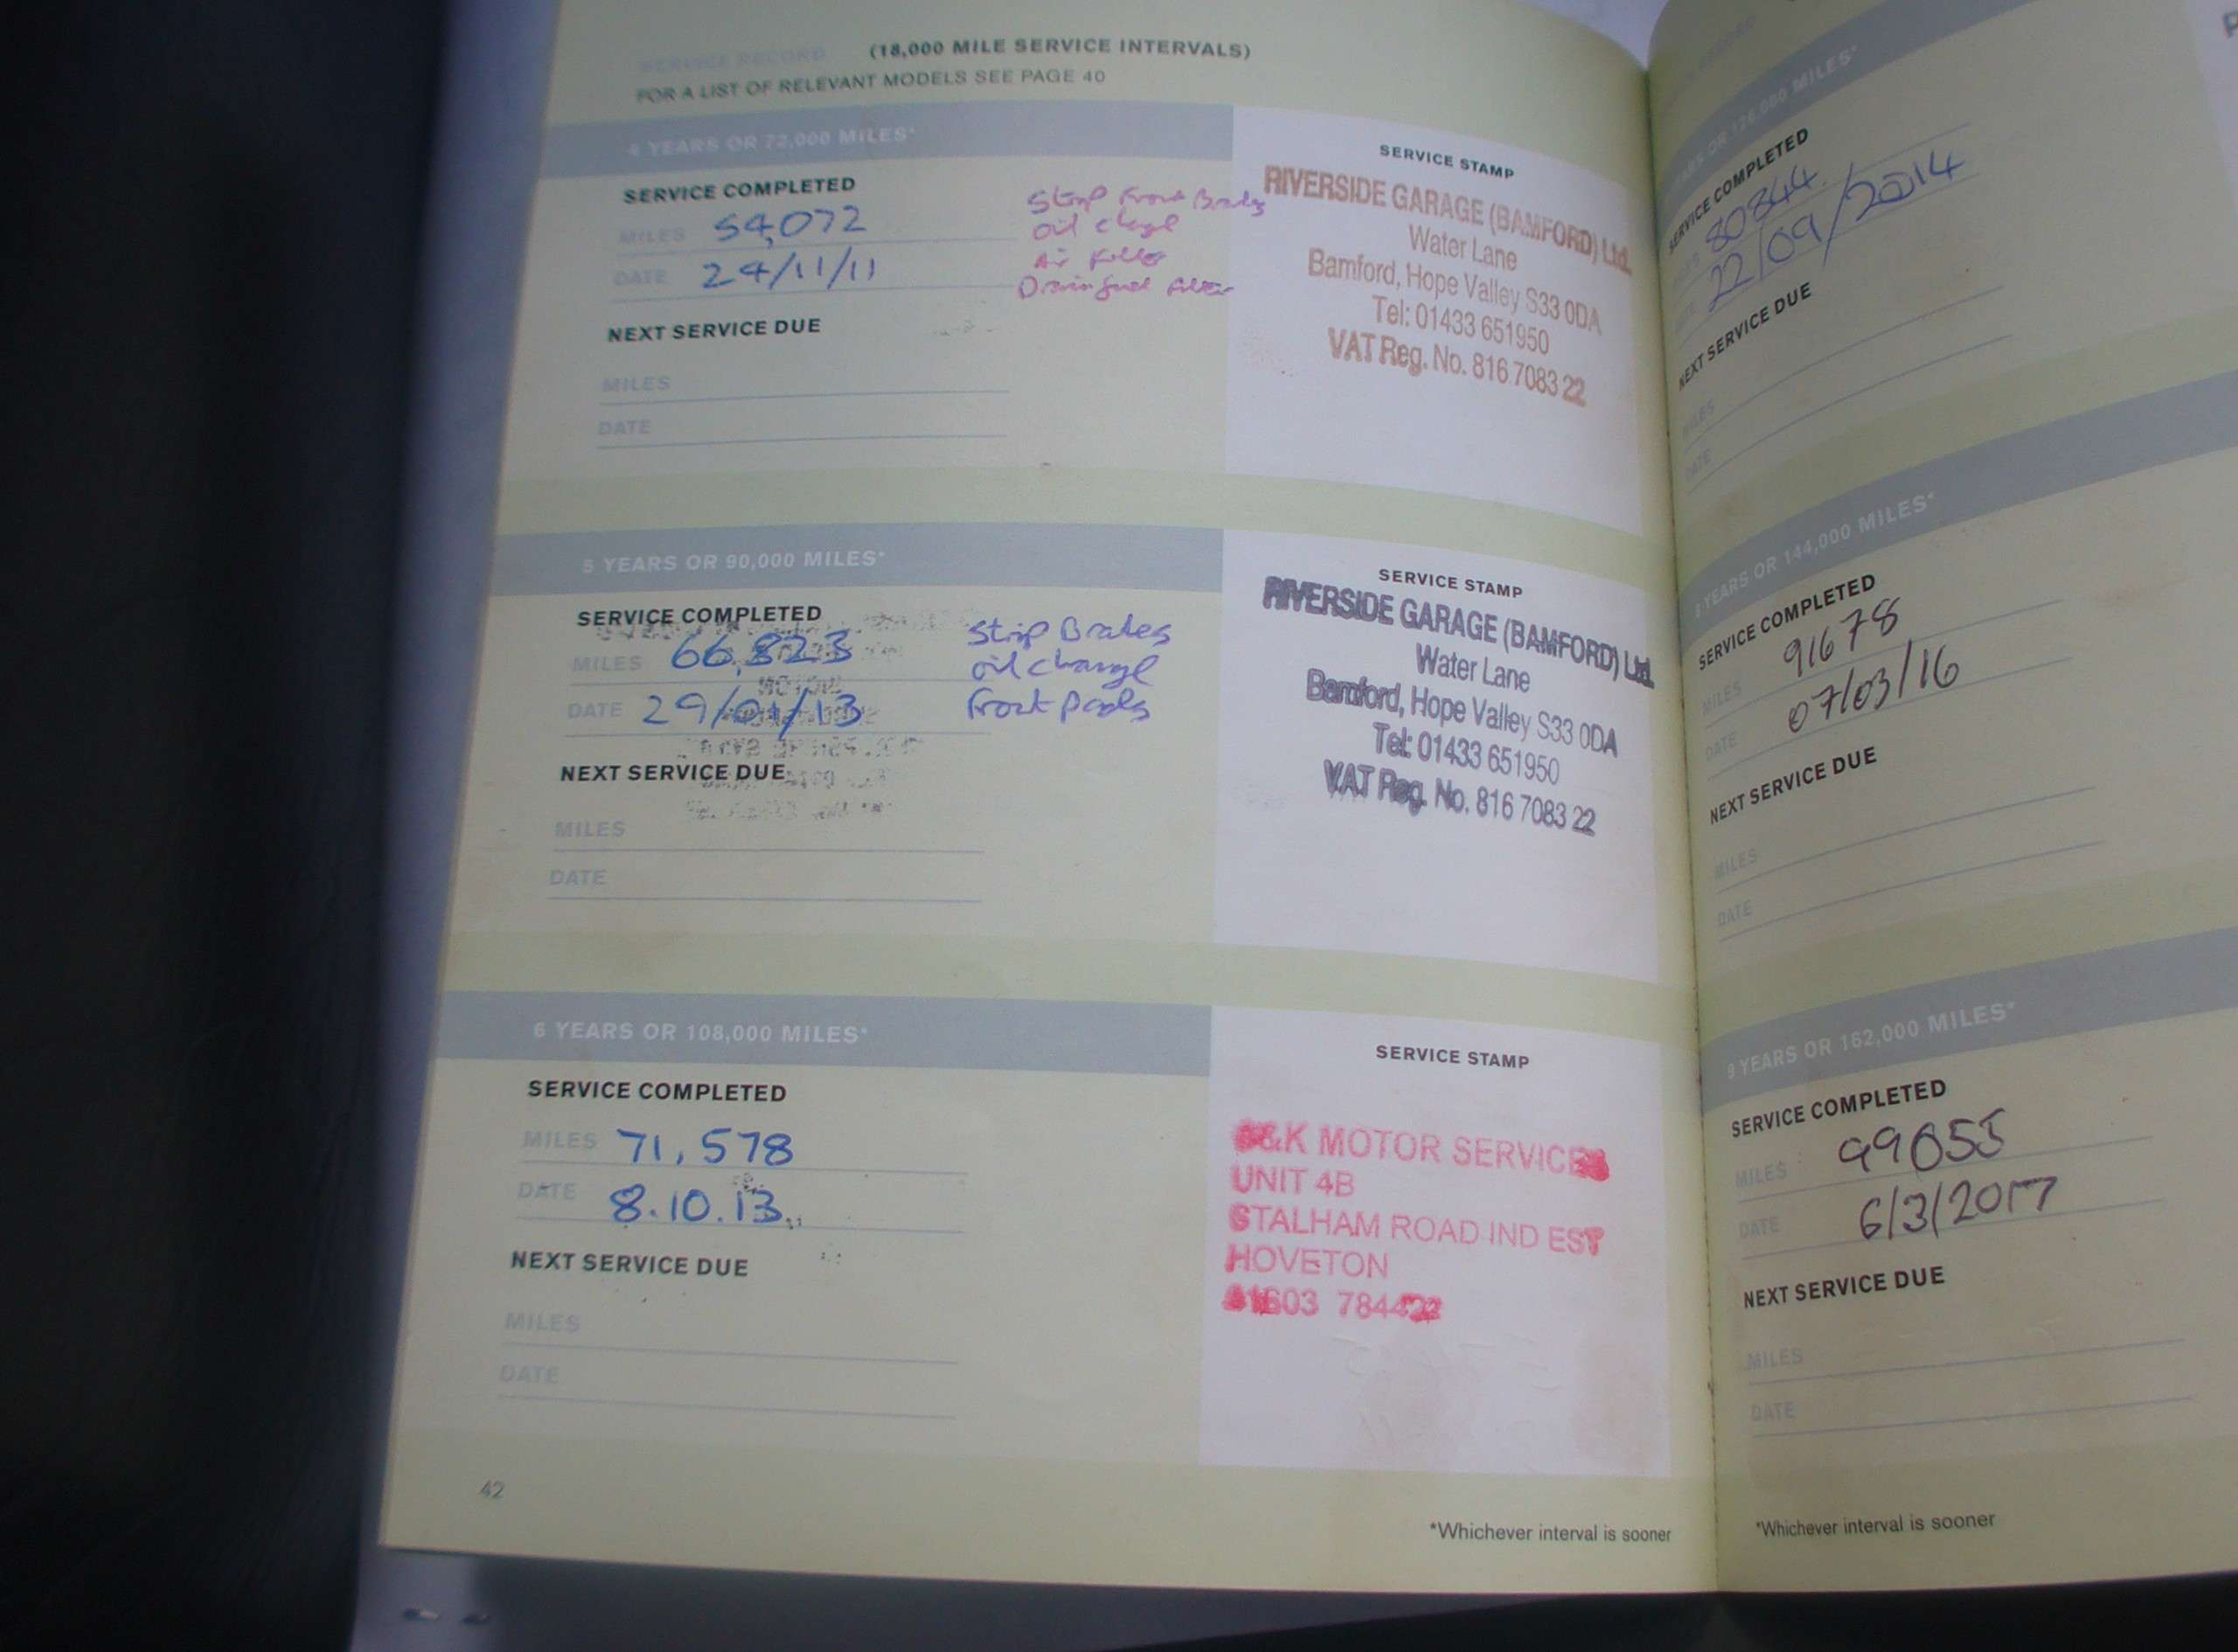 SERVICE RECORD (18,000 MILE SERVICE INTERVALS)
FOR A LIST OF RELEVANT MODELS SEE PAGE 40
4 YEARS OR 72,000 MILES*
SERVICE COMPLETED
MILES 54,072
DATE 24/11/11
Strip Front Brakes
oil change
Air filter
Drain fuel filter
NEXT SERVICE DUE
MILES
DATE
SERVICE STAMP
RIVERSIDE GARAGE (BAMFORD) Ltd.
Water Lane
Bamford, Hope Valley S33 0DA
Tel: 01433 651950
VAT Reg. No. 816 7083 22
5 YEARS OR 90,000 MILES*
SERVICE COMPLETED
MILES 66,823
DATE 29/01/13
Strip Brakes
oil change
front pads
NEXT SERVICE DUE
MILES
DATE
SERVICE STAMP
RIVERSIDE GARAGE (BAMFORD) Ltd.
Water Lane
Bamford, Hope Valley S33 0DA
Tel: 01433 651950
VAT Reg. No. 816 7083 22
6 YEARS OR 108,000 MILES*
SERVICE COMPLETED
MILES 71,578
DATE 8.10.13
NEXT SERVICE DUE
MILES
DATE
SERVICE STAMP
MOTOR SERVICES
UNIT 4B
STALHAM ROAD IND EST
HOVETON
01603
42
*Whichever interval is sooner
YEARS OR 126,000 MILES*
SERVICE COMPLETED
MILES 80844
DATE 22/09/2014
NEXT SERVICE DUE
MILES
DATE
8 YEARS OR 144,000 MILES*
SERVICE COMPLETED
MILES 91678
DATE 07/03/16
NEXT SERVICE DUE
MILES
DATE
9 YEARS OR 162,000 MILES*
SERVICE COMPLETED
MILES 99055
DATE 6/3/2017
NEXT SERVICE DUE
MILES
DATE
*Whichever interval is sooner